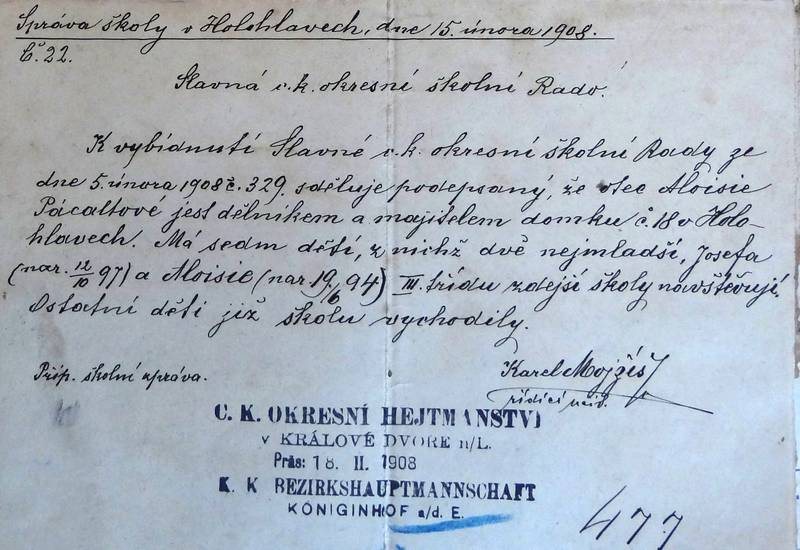 Správa školy v Holohlavech, dne 15. února 1908.
Č. 22.
Slavná c. k. okresní školní Rado!
K vybídnutí Slavné c. k. okresní školní Rady ze
dne 5. února 1908 č. 329. sděluje podepsaný, že otec Aloisie
Pácaltové jest dělníkem a majitelem domku č. 18 v Holo-
hlavech. Má sedm dětí, z nichž dvě nejmladší, Josefa
(nar. 12/10 97) a Aloisie (nar. 19/6 94) III. třídu zdejší školy navštěvují.
Ostatní děti již školu vychodily.
Přip. školní zpráva.
Karel Mojžíš
řídící učit.
C. K. OKRESNÍ HEJTMANSTVÍ
v KRÁLOVÉ DVOŘE n/L.
Präs: 18. II. 1908
K. K BEZIRKSHAUPTMANNSCHAFT
KÖNIGINHOF a/d. E.
477